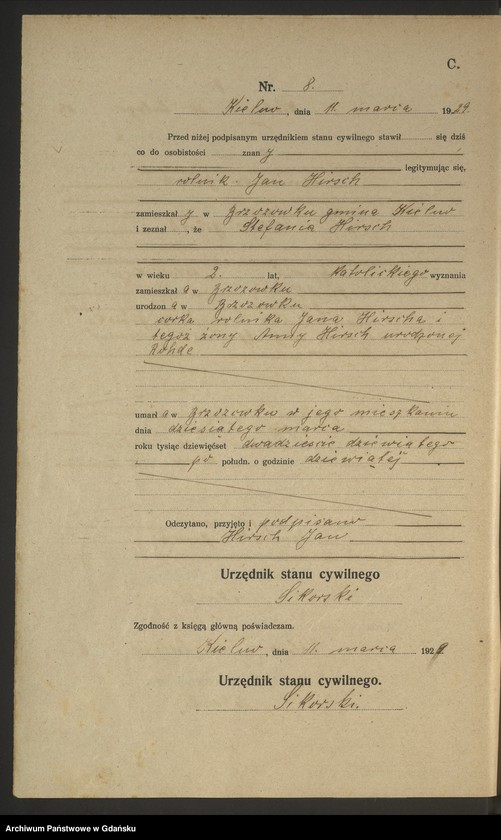 C.
Nr. 8.
Kielno, dnia 11. marca 1929.
Przed niżej podpisanym urzędnikiem stanu cywilnego stawił się dziś
co do osobistości znany
legitymując się,
rolnik Jan Hirsch
zamieszkał y w gmina Kielno
i zeznał , że Stefania Hirsch
w wieku 2. lat, katolickiego wyznania
zamieszkał a w
urodzon a w
córka rolnika Jana Hirscha i
tegoż żony Anny Hirsch urodzonej
Rohde
umarł a w w jego mieszkaniu
dnia dziesiątego marca
roku tysiąc dziewięćset dwadzieścia dziewiątego
po połudn. o godzinie dziewiątej
Odczytano, przyjęto i podpisano
Hirsch Jan
Urzędnik stanu cywilnego
Sikorski
Zgodność z księgą główną poświadczam.
Kielno, dnia 11. marca 1929
Urzędnik stanu cywilnego.
Sikorski.
Archiwum Państwowe w Gdańsku